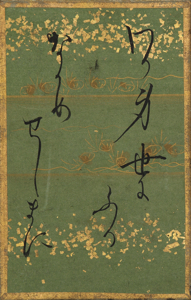 わか身世に
ふる
なかめ
せしまに